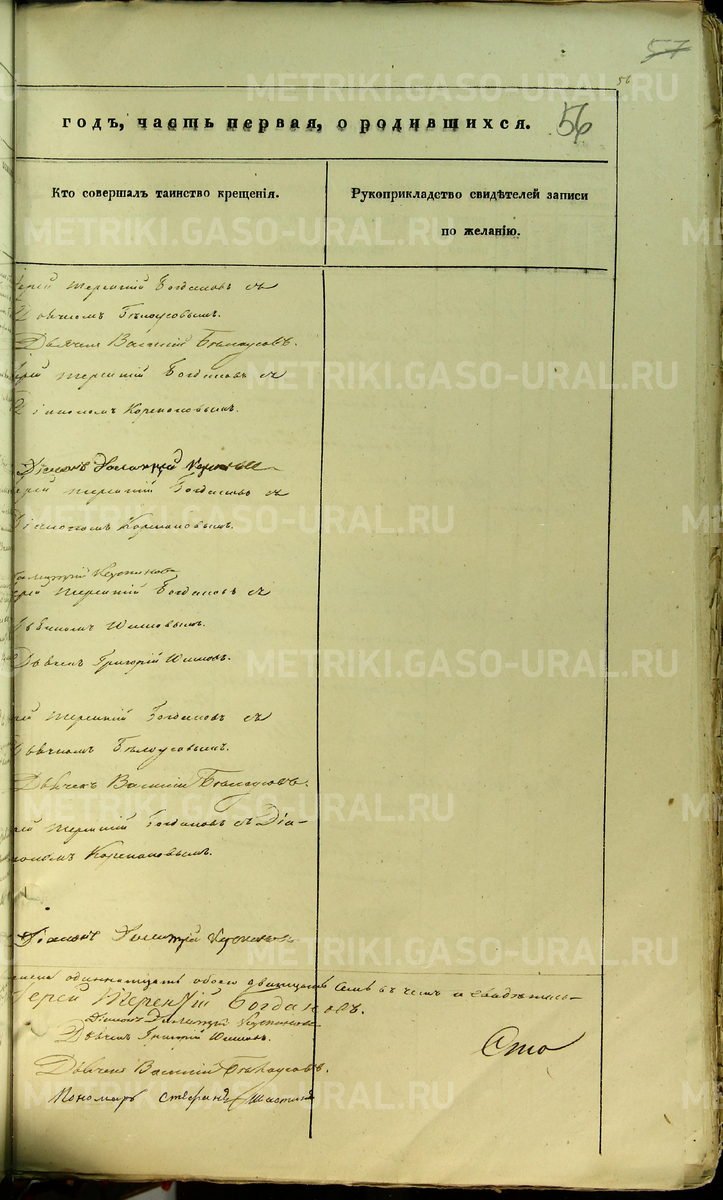 57
56
годъ, часть первая, о родившихся. 56
Кто совершалъ таинство крещенія.
Рукоприкладство свидѣтелей записи
по желанію.
Іерей Терентій Богдановъ съ
Дьячкомъ Бѣлоусовымъ.
Дьячекъ Василій Бѣлоусовъ.
Іерей Терентій Богдановъ съ
Діакономъ Корепановымъ.
Діаконъ Димитрій
Іерей Терентій Богдановъ съ
Діакономъ Корепановымъ.
Димитрій Корепановъ
Іерей Терентій Богдановъ съ
Дьячкомъ Шишовымъ.
Дьячекъ Григорій Шишовъ.
Іерей Терентій Богдановъ съ
Дьячкомъ Бѣлоусовымъ.
Дьячекъ Василій Бѣлоусовъ.
Іерей Терентій Богдановъ съ Діа-
кономъ Корепановымъ.
Діаконъ Димитрій Корепановъ
одиннатцать обоего двадцать семь въ чемъ и
Іерей Терентій Богдановъ.
Діаконъ Димитрій Корепановъ
Дьячекъ Григорій Шишовъ.
Сто
Дьячекъ Василій Бѣлоусовъ.
Пономарь Стефанъ
METRIKI.GASO-URAL.RU